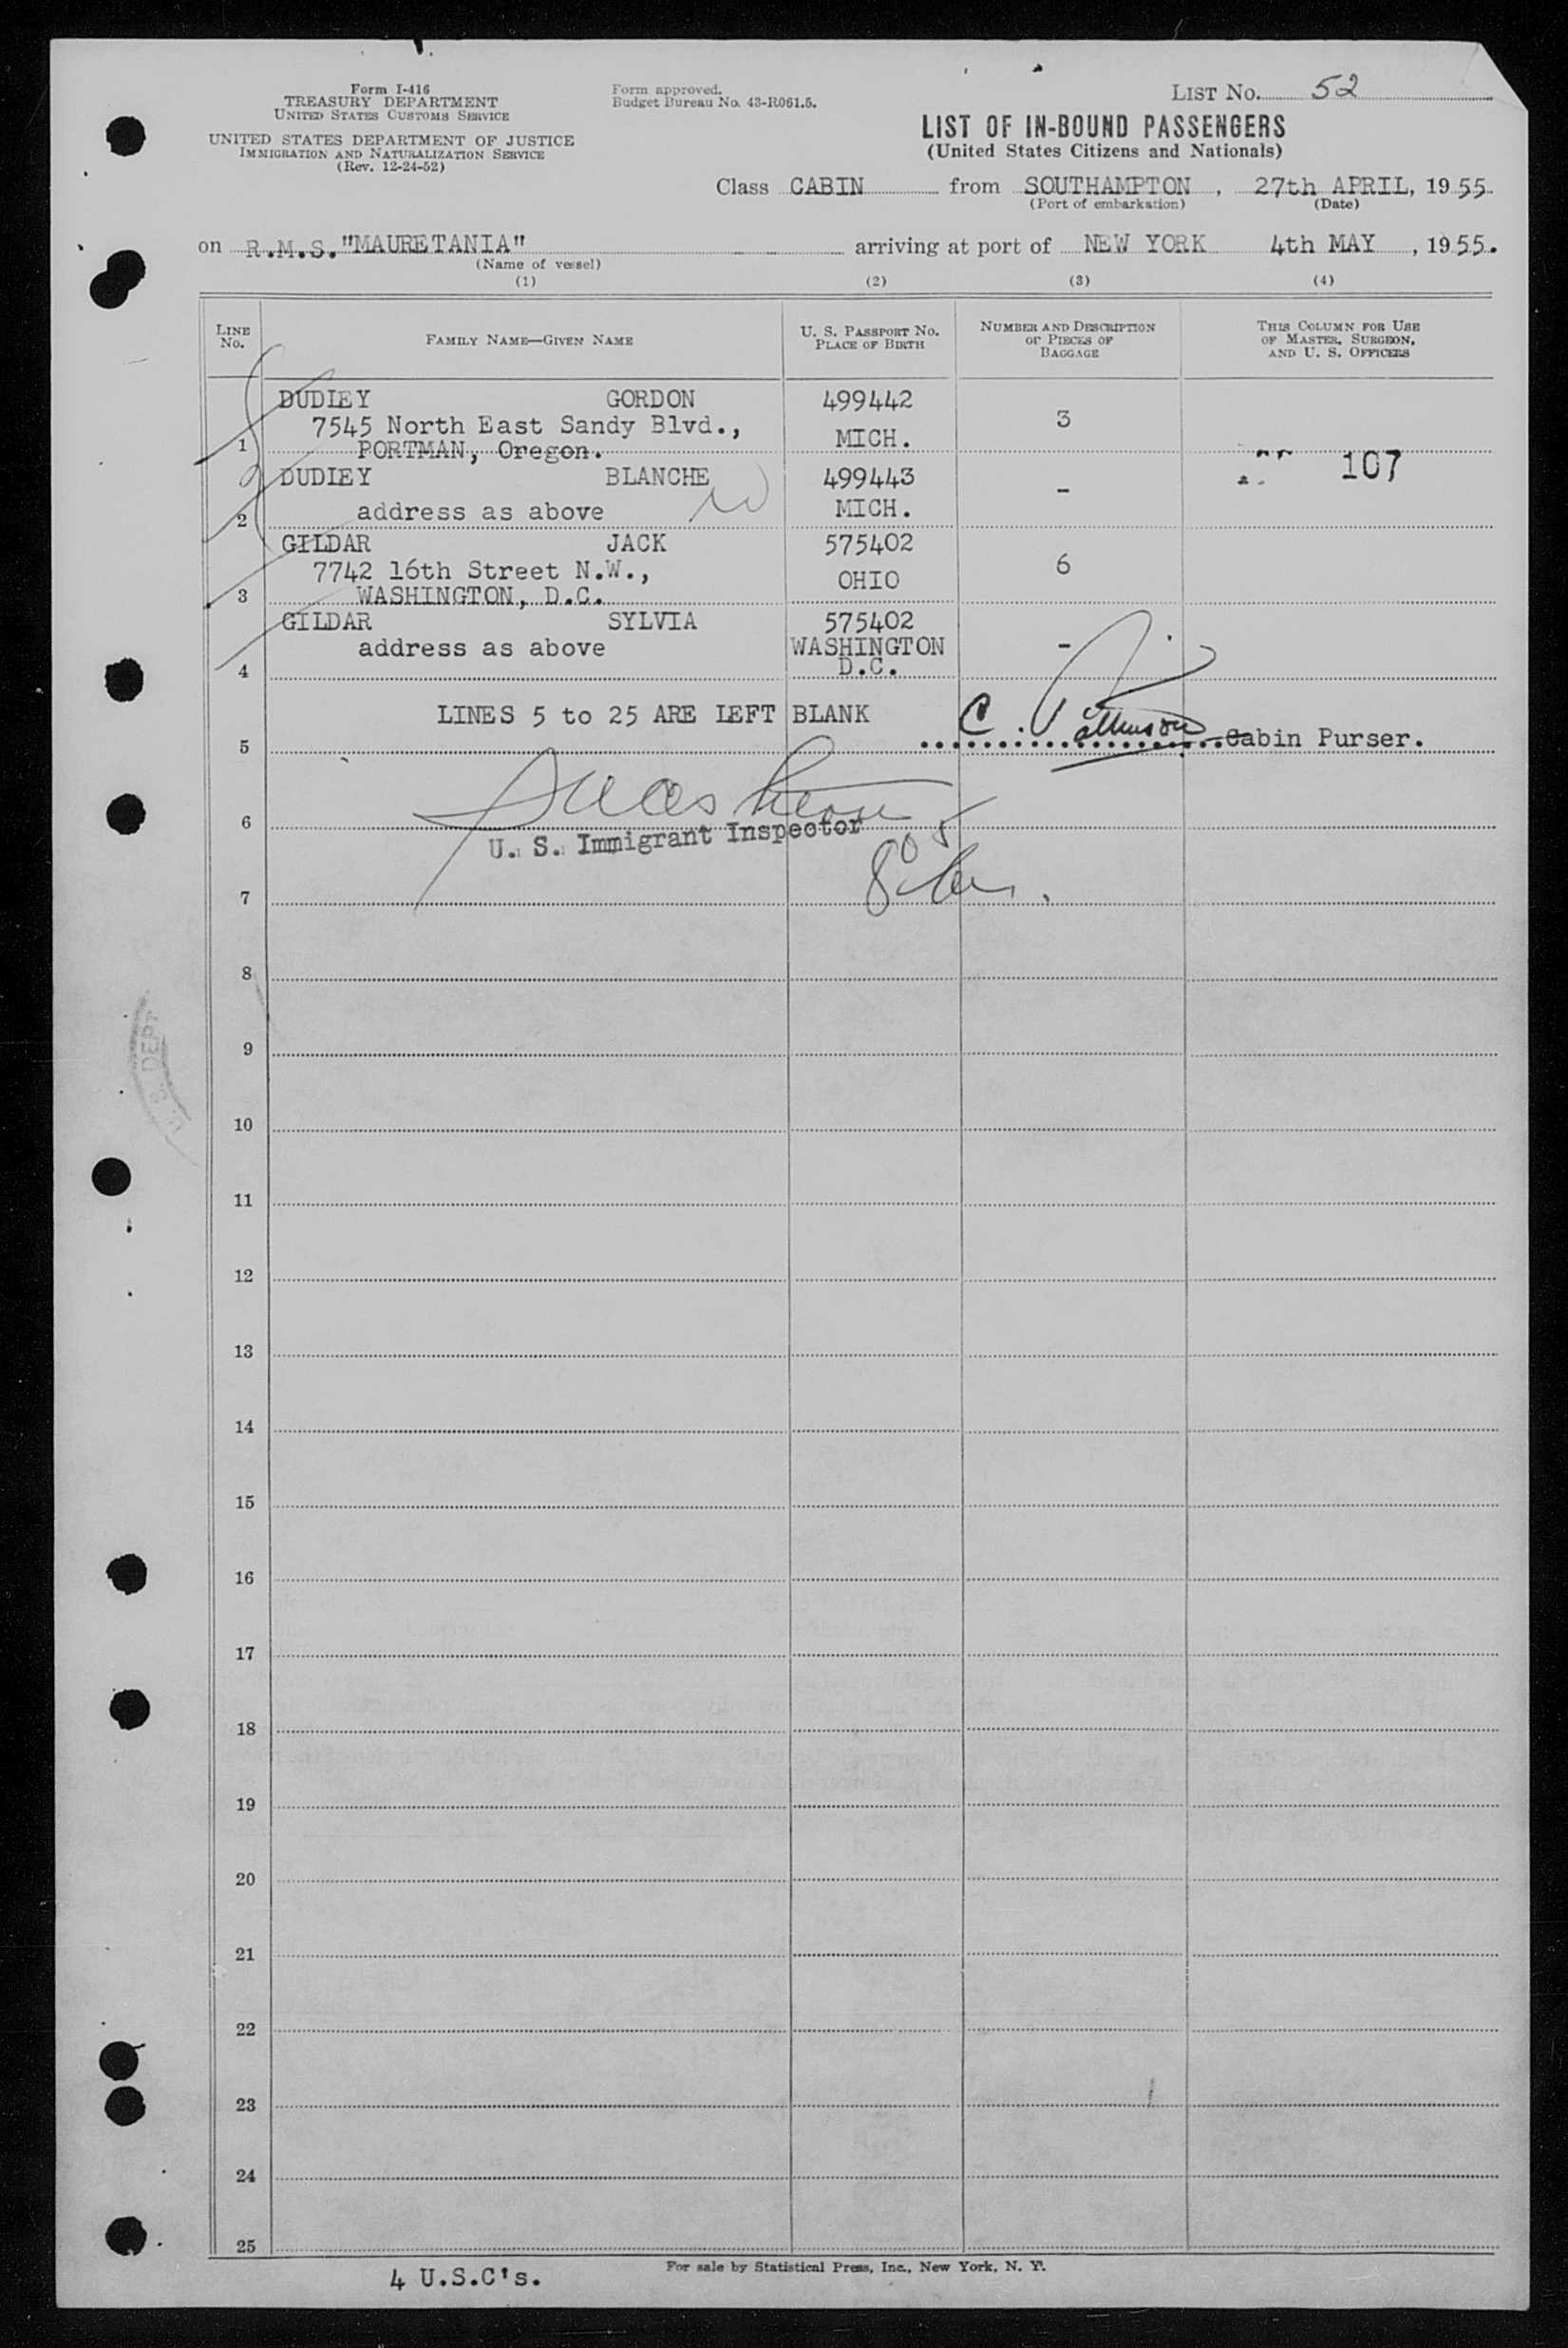 Form I-416
TREASURY DEPARTMENT
UNITED STATES CUSTOMS SERVICE
UNITED STATES DEPARTMENT OF JUSTICE
IMMIGRATION AND NATURALIZATION SERVICE
(Rev. 12-24-52)
Form approved.
Budget Bureau No. 43-R061.5.
LIST No. 52
LIST OF IN-BOUND PASSENGERS
(United States Citizens and Nationals)
Class CABIN from SOUTHAMPTON, 27th APRIL, 1955.
(Port of embarkation) (Date)
on R.M.S. "MAURETANIA" arriving at port of NEW YORK 4th MAY, 1955.
(Name of vessel)
(1) (2) (3) (4)
LINE No. FAMILY NAME—GIVEN NAME U. S. PASSPORT No. PLACE OF BIRTH NUMBER AND DESCRIPTION OF PIECES OF BAGGAGE THIS COLUMN FOR USE OF MASTER, SURGEON, AND U. S. OFFICERS
DUDLEY GORDON 499442
7545 North East Sandy Blvd., 3
1 PORTMAN, Oregon. MICH.
107
DUDLEY BLANCHE 499443 -
2 address as above MICH.
GILDAR JACK 575402
7742 16th Street N.W., OHIO 6
3 WASHINGTON, D.C.
GILDAR SYLVIA 575402
address as above WASHINGTON -
4 D.C.
LINES 5 to 25 ARE LEFT BLANK
5 Cabin Purser.
6
U. S. Immigrant Inspector
7
8
9
10
11
12
13
14
15
16
17
18
19
20
21
22
23
24
25
4 U.S.C's.
For sale by Statistical Press, Inc., New York, N. Y.